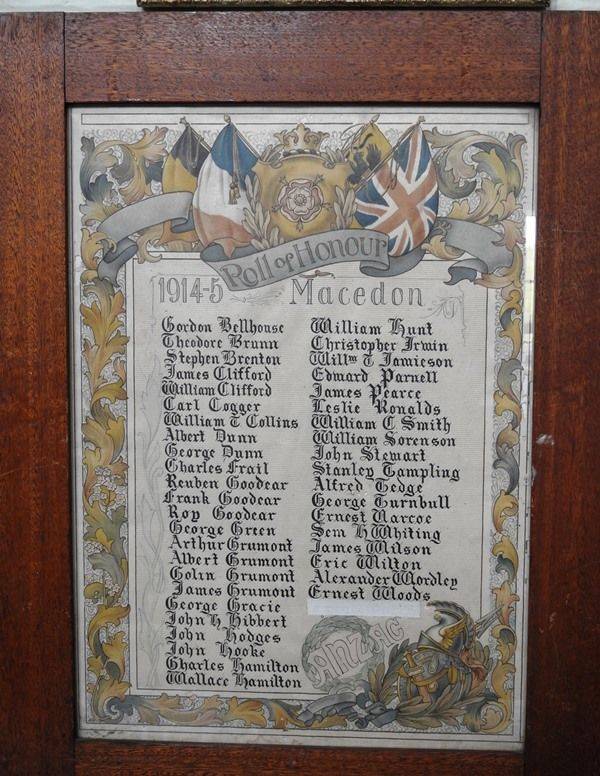 Roll of Honour
1914-5 Macedon
Gordon Bellhouse
Theodore Brunn
Stephen Brenton
James Clifford
William Clifford
Carl Cogger
William T Collins
Albert Dunn
George Dunn
Charles Frail
Reuben Goodear
Frank Goodear
Roy Goodear
George Green
Arthur Grumont
Albert Grumont
Colin Grumont
James Grumont
George Gracie
John H Hibbert
John Hodges
John Hooke
Charles Hamilton
Wallace Hamilton
William Hunt
Christopher Irwin
Willm T Jamieson
Edward Parnell
James Pearce
Leslie Ronalds
William C Smith
William Sorenson
John Stewart
Stanley Tampling
Alfred Tedge
George Turnbull
Ernest Varcoe
Sem H Whiting
James Wilson
Eric Wilton
Alexander Wordley
Ernest Woods
ANZAC